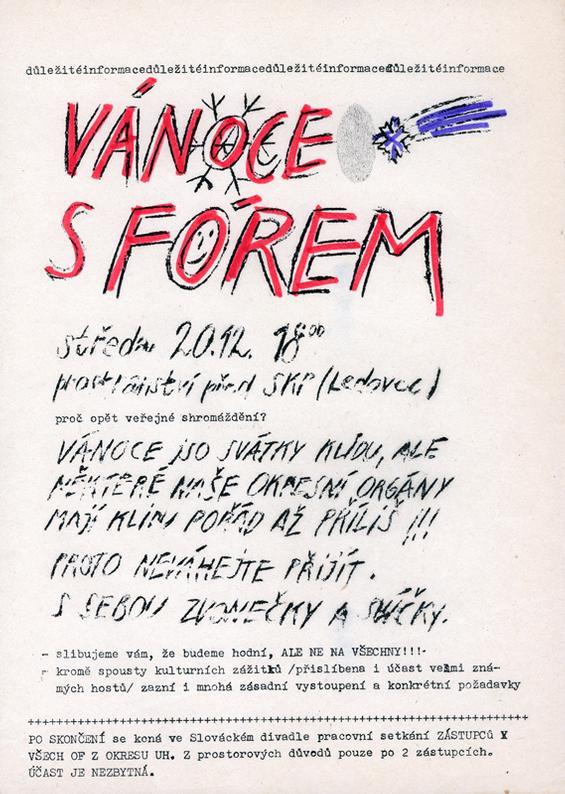 důležitéinformacedůležitéinformacedůležitéinformacedůležitéinformace
VÁNOCE
S FÓREM
středa 20.12. 18⁰⁰
prostranství před SKP (Ledovec)
proč opět veřejné shromáždění?
VÁNOCE JSO SVÁTKY KLIDU, ALE
NĚKTERÉ NAŠE OKRESNÍ ORGÁNY
MAJÍ KLIDU POŘÁD AŽ PŘÍLIŠ !!!
PROTO NEVÁHEJTE PŘIJÍT.
S SEBOU ZVONEČKY A SVÍČKY.
- slibujeme vám, že budeme hodní, ALE NE NA VŠECHNY!!!-
- kromě spousty kulturních zážitků /přislíbena i účast velmi zná-
mých hostů/ zazní i mnohá zásadní vystoupení a konkrétní požadavky
++++++++++++++++++++++++++++++++++++++++++++++++++++++++++++++++++++++
PO SKONČENÍ se koná ve Slováckém divadle pracovní setkání ZÁSTUPCŮ
VŠECH OF Z OKRESU UH. Z prostorových důvodů pouze po 2 zástupcích.
ÚČAST JE NEZBYTNÁ.